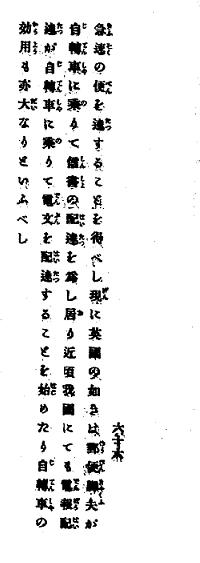 六十六
急速の便を達することを得べし現に英國の如きは郵便脚夫が
自轉車に乘りて信書の配達を爲し居り近頃我國にても電報配
達が自轉車に乘りて電文を配達することを始めたり自轉車の
効用も亦大なりといふべし